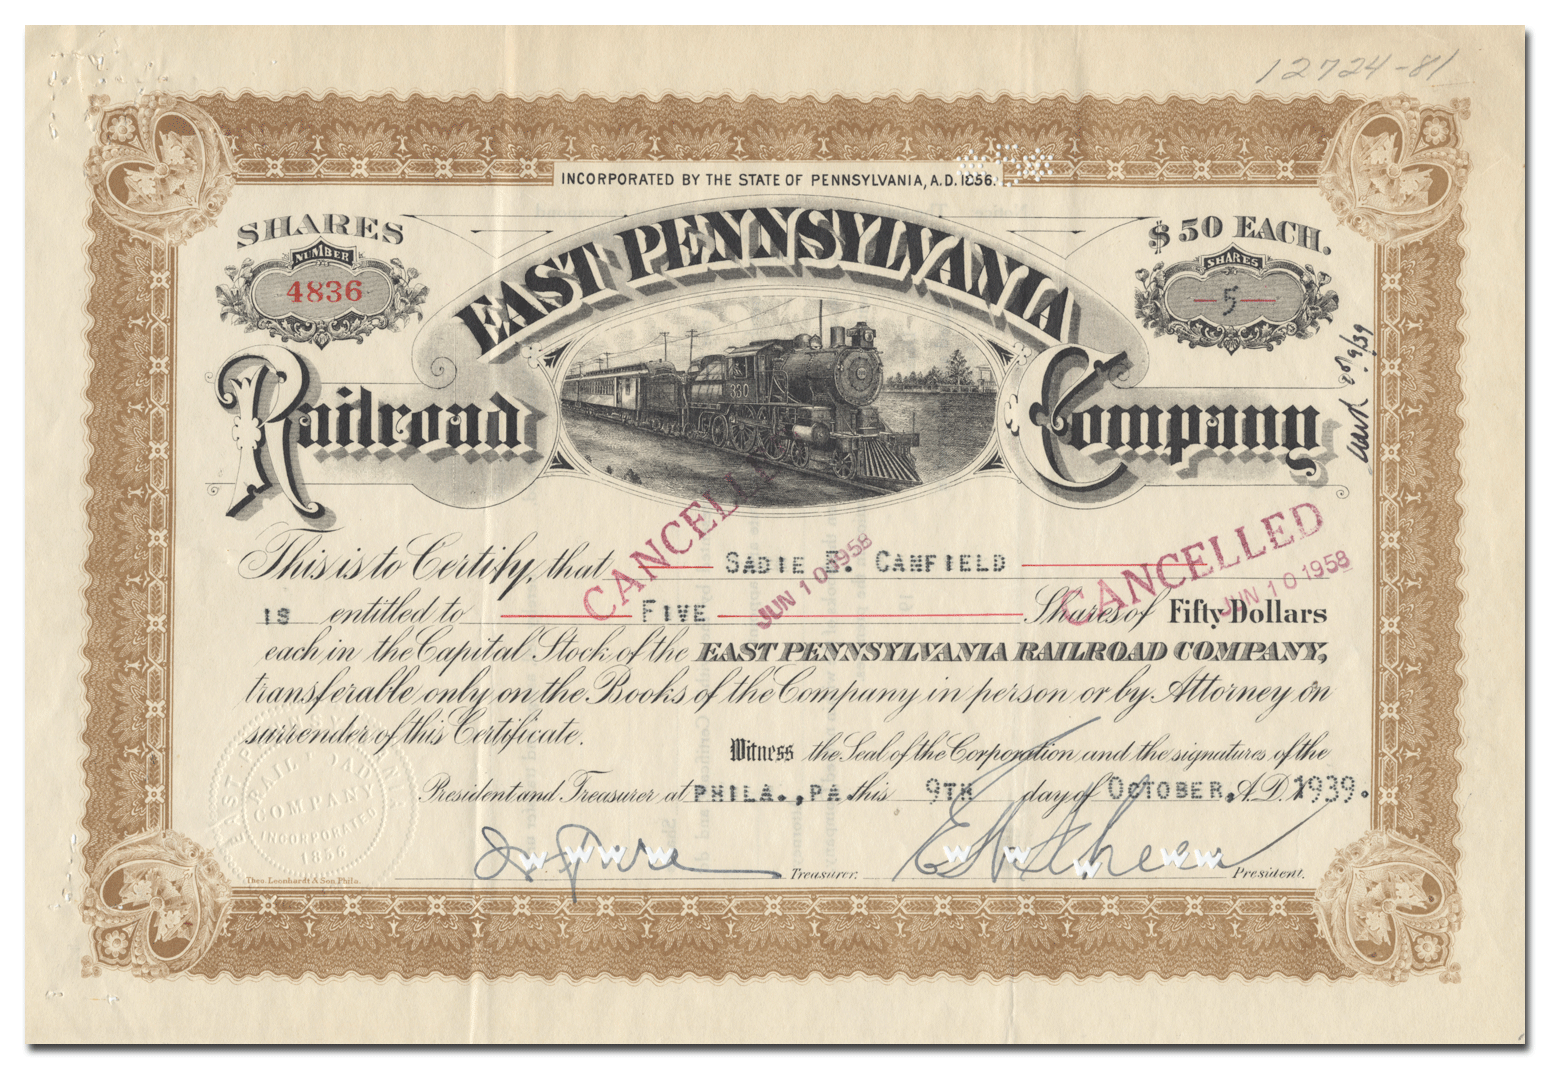 12724-81
INCORPORATED BY THE STATE OF PENNSYLVANIA, A.D. 1856.
SHARES
NUMBER
4836
$50 EACH.
SHARES
5
EAST PENNSYLVANIA
Railroad Company
330
CANCELLED
JUN 10 1958
CANCELLED
JUN 10 1958
This is to Certify, that SADIE E. CANFIELD
IS entitled to FIVE Shares of Fifty Dollars
each in the Capital Stock of the EAST PENNSYLVANIA RAILROAD COMPANY,
transferable only on the Books of the Company in person or by Attorney on
surrender of this Certificate.
Witness the Seal of the Corporation and the signatures of the
President and Treasurer at PHILA., PA this 9TH day of OCTOBER, A.D. 1939.
Treasurer.
President.
EAST PENNSYLVANIA
RAILROAD
COMPANY
INCORPORATED
1856
Theo. Leonhardt & Son Phila.